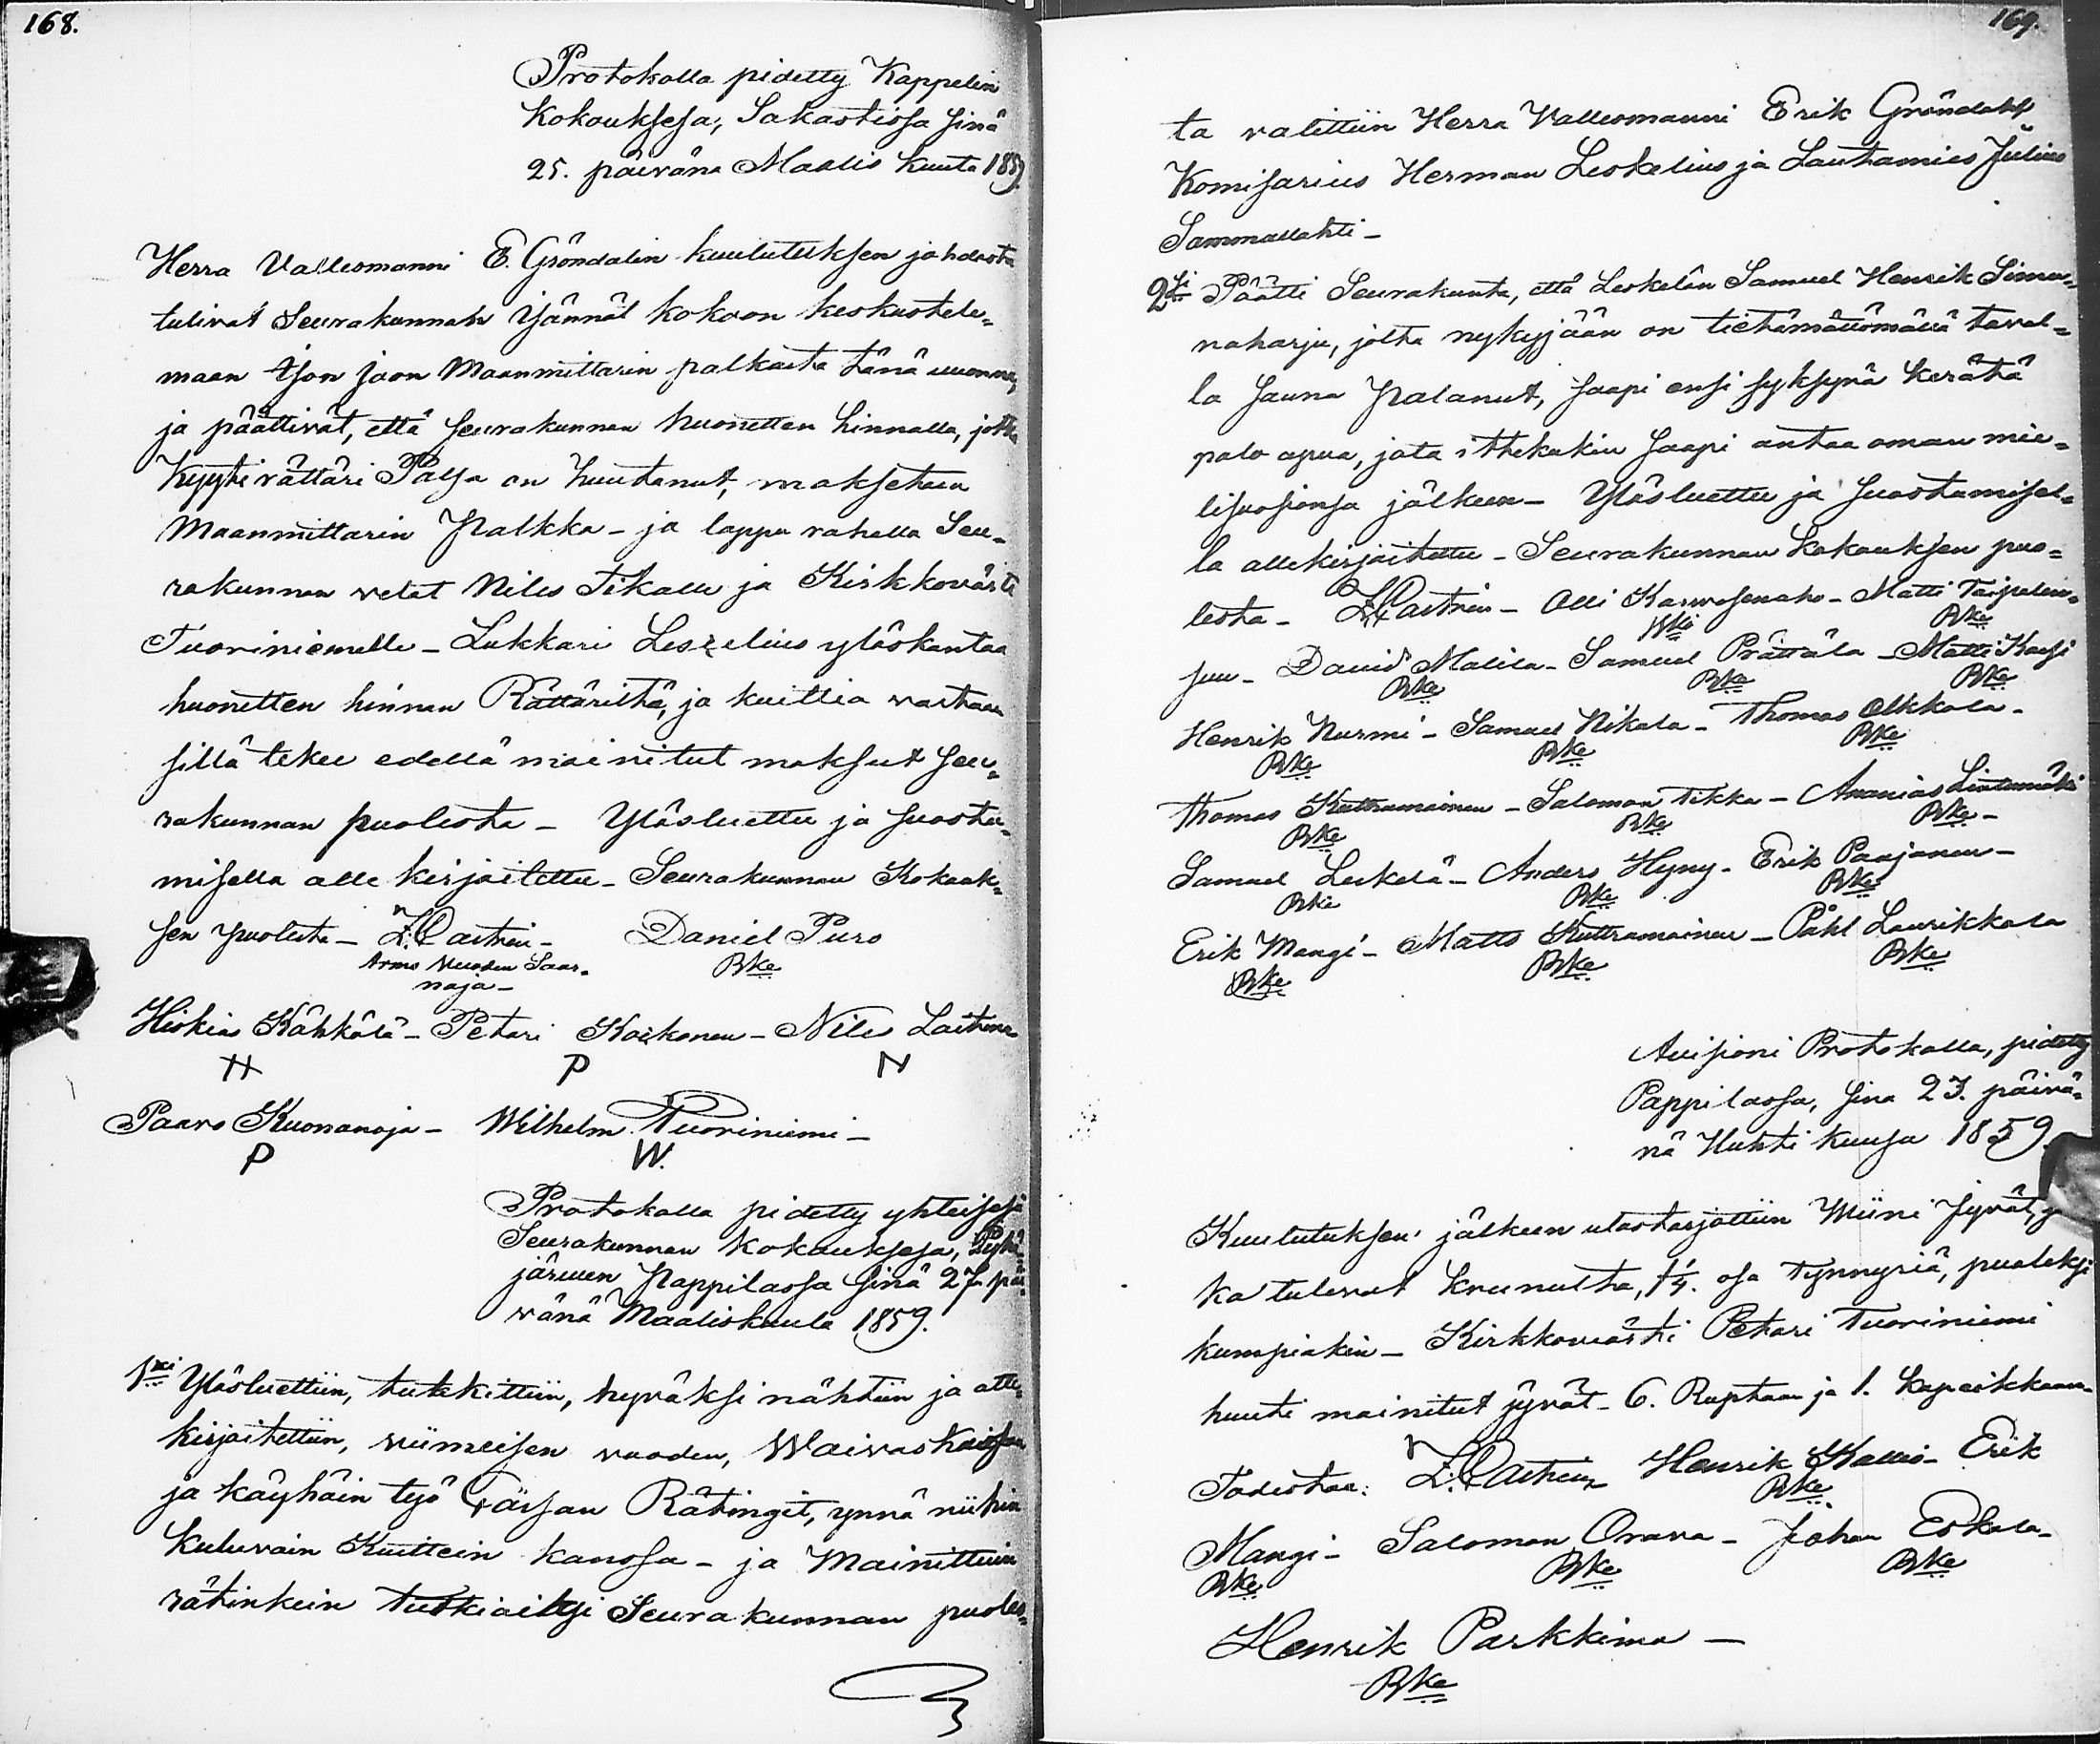 168.
Protokolla pidetty Kappelin
Kokouksesa, Sakastissa sinä
25. päivänä Maalis kuuta 1859.
Herra Vallesmanni E. Gröndalin kuulutuksen johdosta
tulivat Seurakunnan Jäännät kokoon keskustele=
maan Ison jaon Maanmittarin palkasta tänä vuonna,
ja päättivät, että seurakunnan huonetten hinnalla, jotka
Kyytirättäri Palsa on huutanut, maksetaan
Maanmittarin Palkka - ja lappu rahalla Seu=
rakunnan velat Niles Tikalle ja Kirkkovärti
Tuoriniemelle - Lukkari Leskelius ylöskantaa
huonetten hinnan Rättäriltä, ja kuittia vastaan
sillä tekee edellä mainitut maksut seu=
rakunnan puolesta - Ylösluettu ja suostu=
misella alle kirjoitettu - Seurakunnan Kokouk=
sen puolesta - Z. Castrén - Daniel Puro
Armo Vuoden Saar=
naja - Bke
Hiskias Kähkölä - Petari Koikanen - Niles Laitinen
H P N
Paavo Kuonanoja - Wilhelm Tuoriniemi -
P W.
Protokolla pidetty yhteisesä
Seurakunnan kokouksesa, Pyhä=
järven Pappilassa sinä 27 päi=
vänä Maaliskuuta 1859.
1ksi Ylösluettiin, tutkittiin, hyväksi nähtiin ja alle=
kirjoitettiin, viimeisen vuoden, Waivaskassan
ja käyhäin työ Värsan Rätingit, ynnä niihin
kuluvain Kuittein kanssa - ja Mainittuin
rätinkein tutkiaiksi Seurakunnan puoles=
169.
ta valittiin Herra Vallesmanni Erik Gröndahl
Komisarius Herman Leskelius ja Lautamies Julius
Sammallahti -
2ksi Päätti Seurakunta, että Leskelän Samuel Henrik Simu=
naharju, jolta nykyjään on tietämättömällä taval=
la sauna Palanut, saapi ensi syksynä kerätä
palo apua, jota ittekukin saapi antaa oman mie=
lisuosionsa jälkeen - Ylösluettu ja suostumisel=
la allekirjoitettu - Seurakunnan Kokouksen puo=
lesta - Z. Castrén - Olli Karvosenaho - Matti Taipalen=
Bke Bke
suu - David Malila - Samuel Prättälä - Matti Kausi
Bke Bke Bke
Henrik Nurmi - Samuel Nikala - Thomas Olkkola -
Bke Bke Bke
Thomas Kuttramainen - Salomon Tikka - Ananias Lintumäki
Bke Bke Bke -
Samuel Leskelä - Anders Hyny - Erik Paajanen -
Bke Bke Bke
Erik Mangi - Matts Kuttramainen - Påhl Laurikkala
Bke Bke Bke
Auksioni Protokolla, pidetty
Pappilassa, sinä 23. päivä=
nä Huhti kuusa 1859.
Kuulutuksen jälkeen ulostarjottiin Wiini Jyvät, jo
ka tulevat kruunulta, 1 1/4. osa tynnyriä, puoleksi
kumpiakin - Kirkkovärti Petari Tuoriniemi
huuti mainitut jyvät - 6. Ruplaan ja 1. kapeikkaan -
Todistaa: Z. Castrén Henrik Kallio - Erik
Bke
Mangi - Salomon Orava - Johan Eskola -
Bke Bke Bke
Henrik Parkkima -
Bke